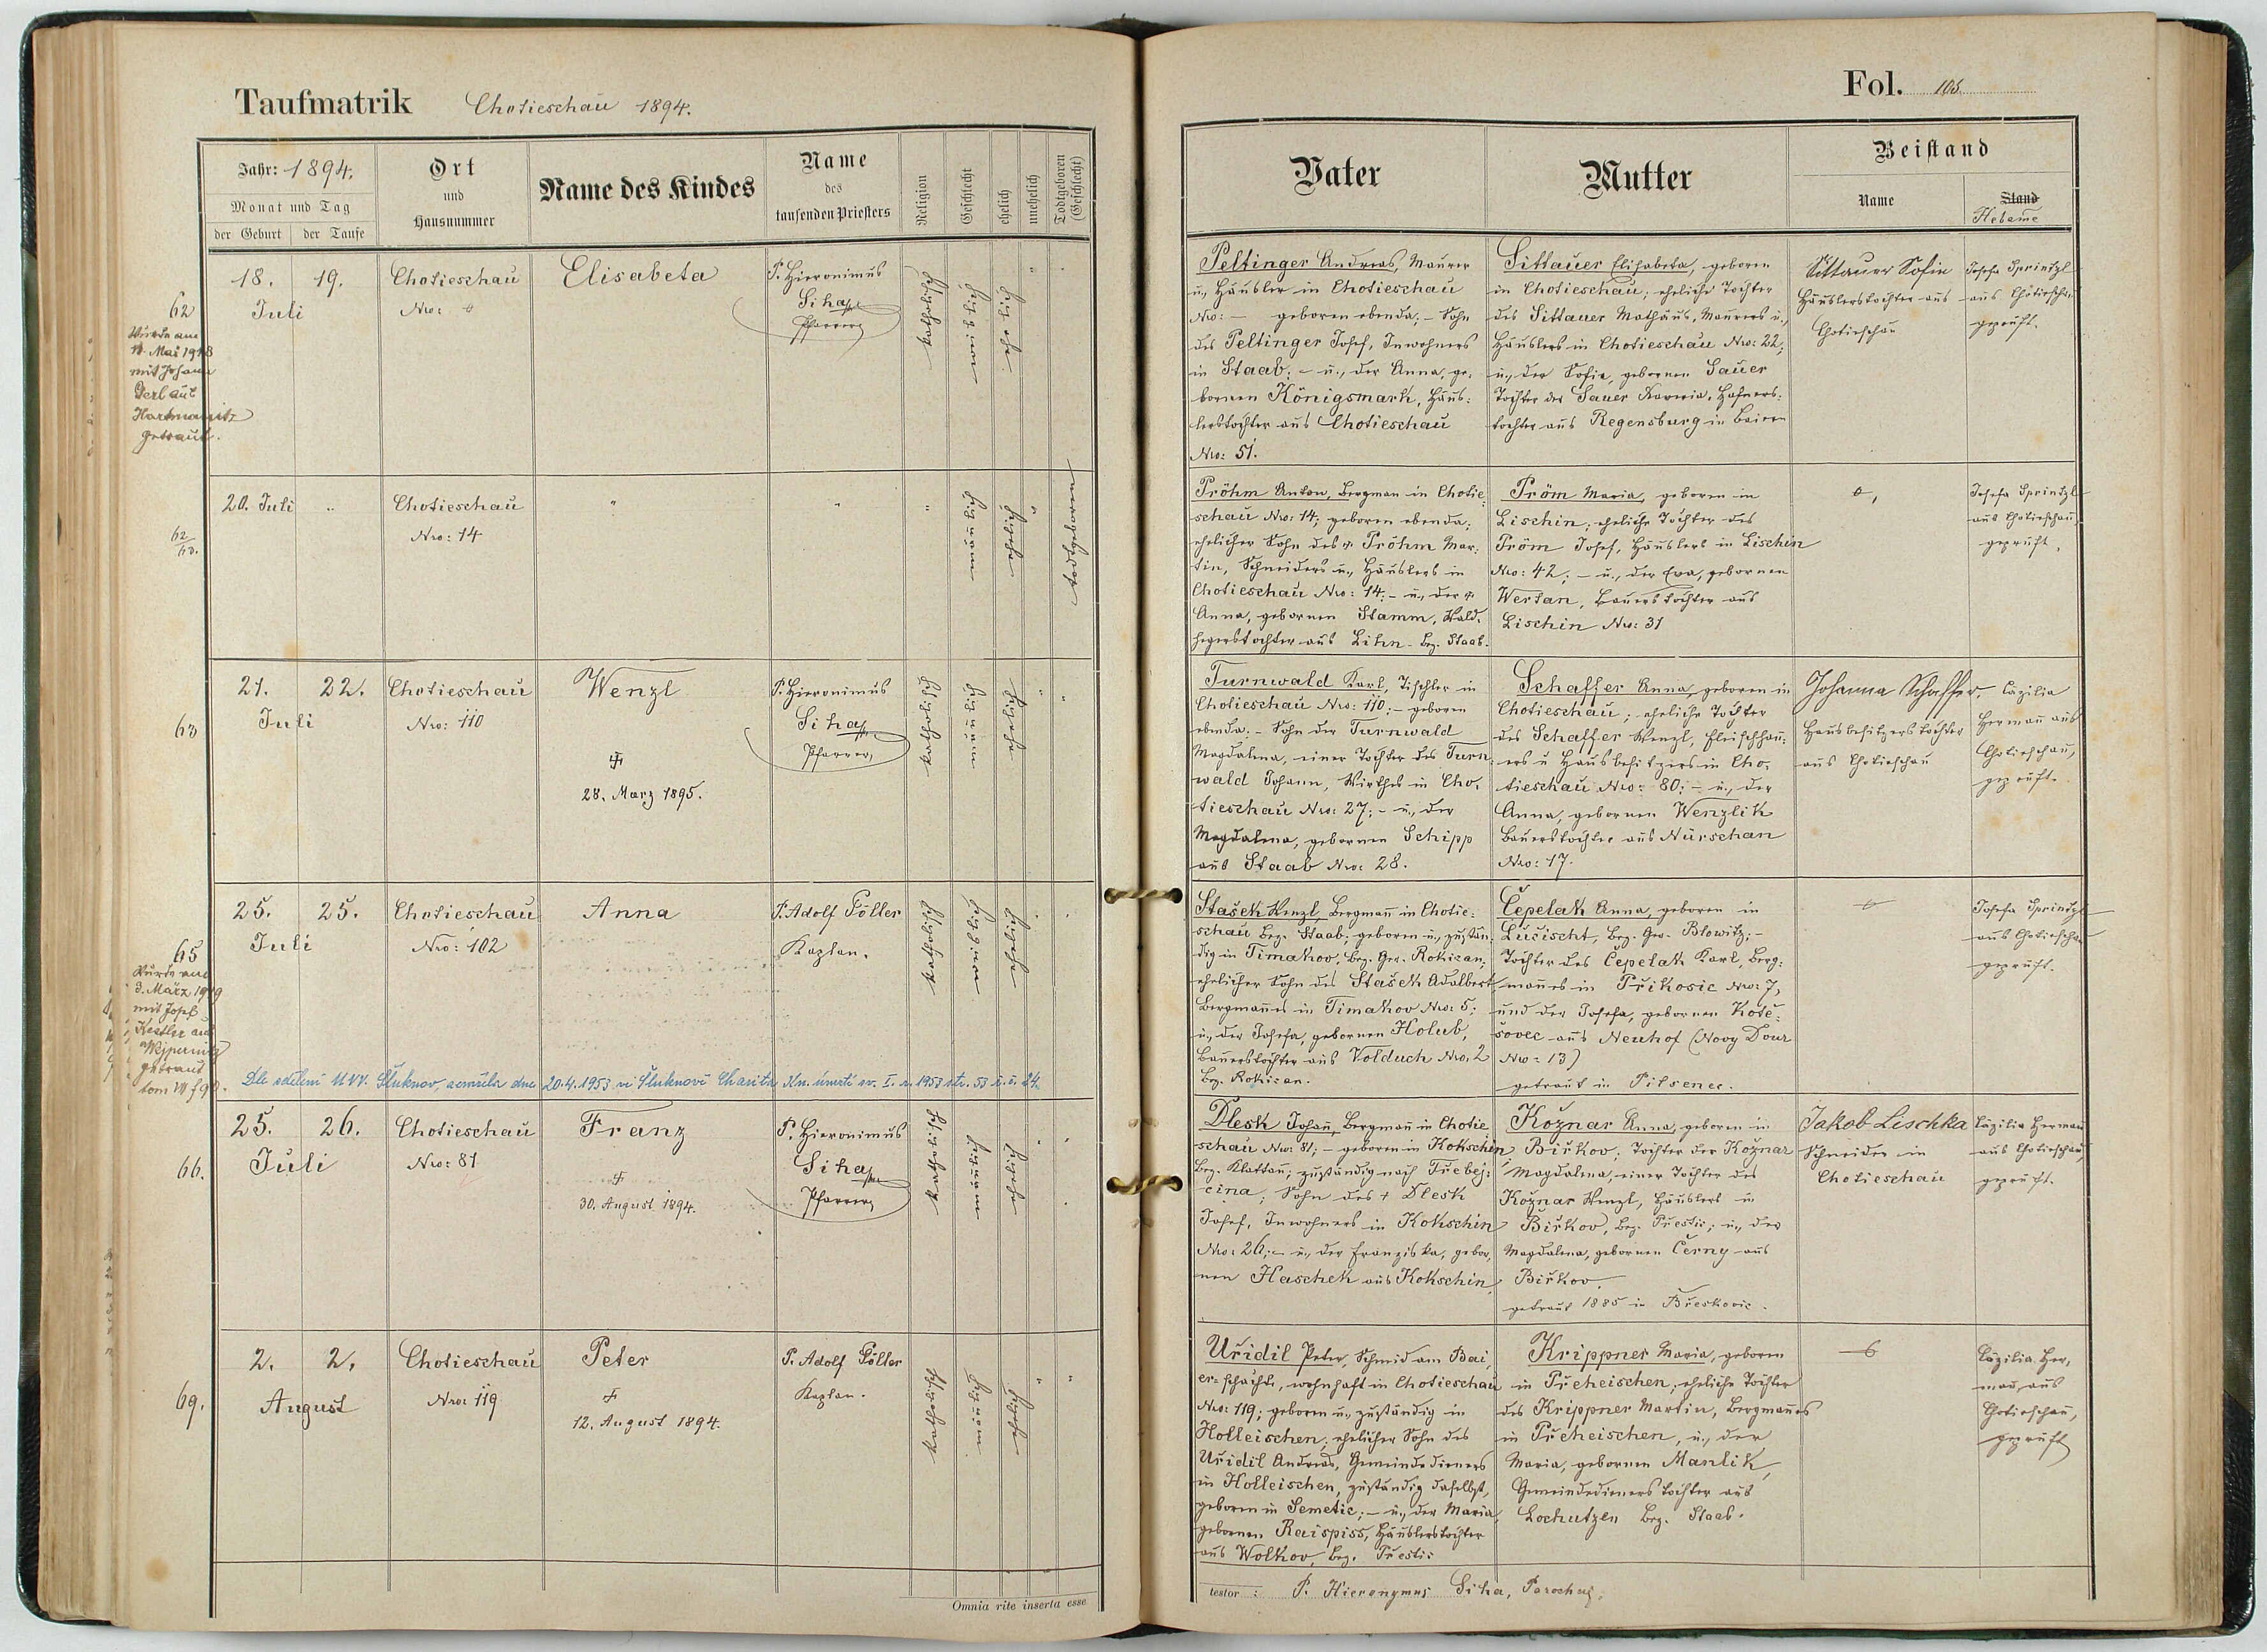 Taufmatrik Chotieschau 1894.
Jahr: 1894.
Monat und Tag
der Geburt der Taufe
Ort
und
Hausnummer
Name des Kindes
Name
des
taufenden Priesters
Religion
Geschlecht
ehelich
unehelich
Todtgeboren
(Geschlecht)
62
Wurde am
mit Johann
aus
getraut.
18. 19.
Juli
Chotieschau
Nro:
Elisabeta
P. Hieronimus
Siha
Pfarrer
katholisch
62/63.
20. Juli
Chotieschau
Nro: 14
todtgeboren
63
21. 22.
Juli
Chotieschau
Nro: 110
Wenzl
28. März 1895.
P. Hieronimus
Siha
Pfarrer
katholisch
65
Wurde am
3. März 1919
mit Josef
getraut
25. 25.
Juli
Chotieschau
Nro: 102
Anna
P. Adolf Töller
Kaplan.
katholisch
Dle sdělení MNV. Šluknov, zemřela dne 20.4.1953 ve Šluknově Charita Kn. úmrtí sv. I. r. 1953 str. 53 č. ú. 24.
66.
25. 26.
Juli
Chotieschau
Nro: 81
Franz
30. August 1894.
P. Hieronimus
Siha
Pfarrer
katholisch
69.
2. 2.
August
Chotieschau
Nro: 119
Peter
12. August 1894.
P. Adolf Töller
Kaplan.
katholisch
ehelich
Omnia rite inserta esse
Fol. 105
Vater
Mutter
Beistand
Name
Stand
Hebame
Peltinger Andreas, Maurer
u., Häusler in Chotieschau
Nro: — geboren ebenda; – Sohn
des Peltinger Josef, Inwohners
in Staab; – u., der Anna, ge-
bornen Königsmark, Häus-
lerstochter aus Chotieschau
Nro: 51.
Sittauer Elisabeta, geboren
in Chotieschau; eheliche Tochter
des Sittauer Mathäus, Maurers u.,
Häuslers in Chotieschau Nro: 22;
u., der Sofie, gebornen Sauer
Tochter der Sauer Xaveria, Hafners-
tochter aus Regensburg in Baiern
Sittauer Sofie
Häuslerstochter aus
Chotieschau
Josefa Sprintzl
aus Chotieschau
geprüft.
Pröhm Anton, Bergman in Chotie-
schau Nro: 14; geboren ebenda;
ehelicher Sohn des Pröhm Mar-
tin, Schneiders u., Häuslers in
Chotieschau Nro: 14; – u., der
Anna, gebornen Stamm, Wald-
hegerstochter aus Lihn Bez. Staab.
Pröm Maria, geboren in
Lischin; eheliche Tochter des
Pröm Josef, Häuslers in Lischin
Nro: 42; – u., der Eva, gebornen
Wertan, Bauerstochter aus
Lischin Nro: 31
Josefa Sprintzl
aus Chotieschau,
geprüft.
Turnwald Karl, Tischler in
Chotieschau Nro: 110; – geboren
ebenda; – Sohn der Turnwald
Magdalena, einer Tochter des Turn-
wald Johann, Wirthes in Cho-
tieschau Nro: 27; – u., der
Magdalena, gebornen Schipp
aus Staab Nro: 28.
Schaffer Anna, geboren in
Chotieschau; eheliche Tochter
des Schaffer Wenzl, Fleischhau-
ers u Hausbesitzers in Cho-
tieschau Nro: 80; – u., der
Anna, gebornen Wenzlik
Bauerstochter aus Nürschan
Nro: 17.
Johanna Schaffer,
Hausbesitzerstochter
aus Chotieschau
Cäzilia
Herman aus
Chotieschau,
geprüft.
Stašek Wenzl, Bergman in Chotie-
schau Bez. Staab; geboren u., zustän-
dig in Timakov, Bez. Ger. Rokizan,
ehelicher Sohn des Stašek Adalbert
Bergmannes in Timakov Nro: 5;
u., der Josefa, gebornen Holub,
Bauerstochter aus Volduch Nro: 2
Bez. Rokizan.
Čepelak Anna, geboren in
Lučischt, Bez. Ger. Blowitz; –
Tochter des Čepelak Karl, Berg-
mannes in Přikosic Nro: 7,
und der Josefa, gebornen Kote-
šovec aus Neuhof (Novy Dour
Nro: 13)
getraut in Pilsenec.
Josefa Sprintzl
aus Chotieschau
geprüft.
Dlesk Johann, Bergman in Chotie-
schau Nro: 81; – geboren in Kokschin
Bez. Klattau; zuständig nach Třebej-
cina; Sohn des † Dlesk
Josef, Inwohners in Kokschin
Nro: 26; – u., der Franziska, gebor-
nen Haschek aus Kokschin
Kožnar Anna, geboren in
Biřkov; Tochter der Kožnar
Magdalena, einer Tochter des
Kožnar Wenzl, Häuslers in
Biřkov, Bez. Přestic; u., der
Magdalena, gebornen Černy aus
Biřkov.
getraut 1885 in Břeskovic.
Jakob Lischka
Schneider in
Chotieschau
Cäzilia Herman
aus Chotieschau,
geprüft.
Uřidil Peter, Schmid am Bai-
er-schachte, wohnhaft in Chotieschau
Nro: 119; geboren u., zuständig in
Holleischen; ehelicher Sohn des
Uřidil Andreas, Gemeindedieners
in Holleischen, zuständig daselbst,
geboren in Semetic; – u., der Maria,
gebornen Raispiss, Häuslerstochter
aus Wolkov, Bez. Přestic
Krippner Maria, geboren
in Přeheischen; eheliche Tochter
des Krippner Martin, Bergmannes
in Přeheischen, u., der
Maria, gebornen Manlik,
Gemeindedieners Tochter aus
Lochutzen Bez. Staab.
Cäzilia Her-
man, aus
Chotieschau,
geprüft
testor: P. Hieronymus Siha, Parochus,